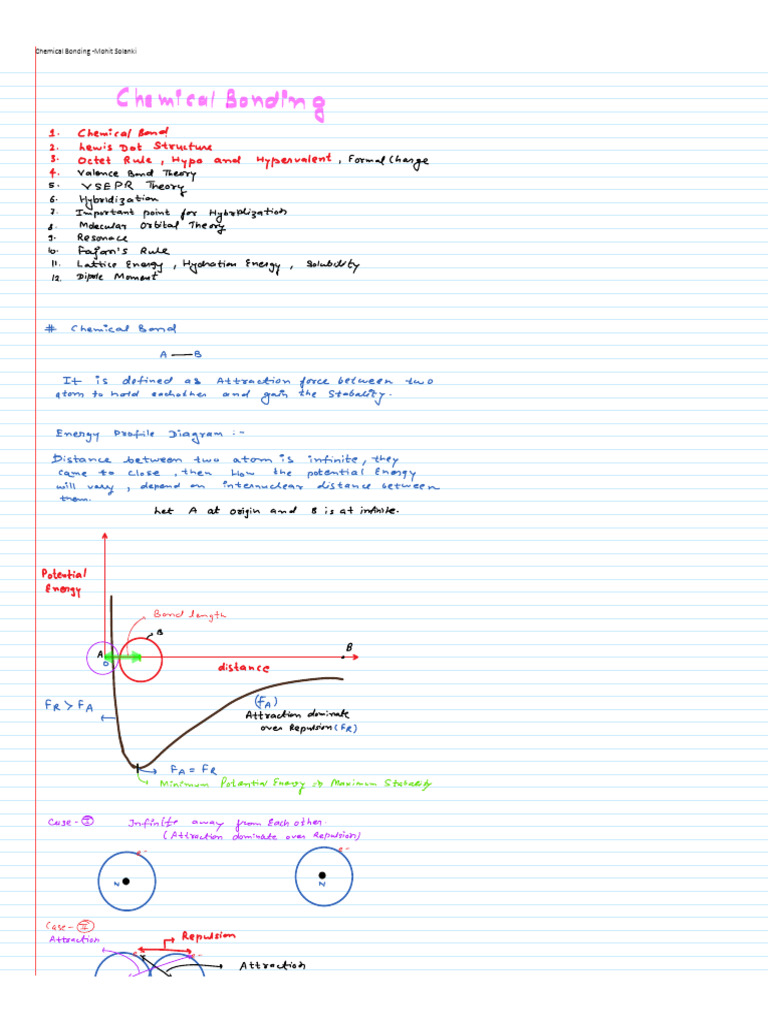 Chemical Bonding -Mohit Solanki
Chemical Bonding
1. Chemical Bond
2. Lewis Dot Structure
3. Octet Rule, Hypo and Hypervalent, Formal Charge
4. Valence Bond Theory
5. VSEPR Theory
6. Hybridization
7. Important point for Hybridization
8. Molecular Orbital Theory
9. Resonace
10. Fajan's Rule
11. Lattice Energy, Hydration Energy, Solubility
12. Dipole Moment
# Chemical Bond
A — B
It is defined as Attraction force between two
atom to hold eachother and gain the Stability.
Energy Profile Diagram :-
Distance between two atom is infinite, they
came to close, then How the potential Energy
will vary, depend on internuclear distance between
them.
Let A at origin and B is at infinite.
Potential
Energy
Bond length
B
A
O
B
distance
FR > FA
(FA)
Attraction dominate
over Repulsion (FR)
FA = FR
Minimum Potential Energy ⇒ Maximum Stability
Case - I Infinite away from Each other.
(Attraction dominate over Repulsion)
e-
e-
N
N
Case - II
Attraction
Repulsion
e-
e-
Attraction